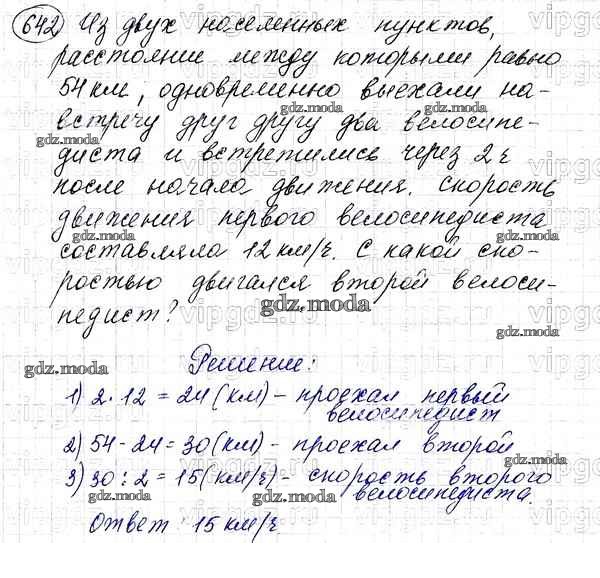 642) Из двух населенных пунктов,
расстояние между которыми равно
54 км, одновременно выехали на-
встречу друг другу два велосипе-
диста и встретились через 2 ч
после начала движения. Скорость
движения первого велосипедиста
составляла 12 км/ч. С какой ско-
ростью двигался второй велоси-
педист?
Решение:
1) 2·12 = 24 (км) - проехал первый
велосипедист
2) 54 - 24 = 30 (км) - проехал второй
3) 30 : 2 = 15 (км/ч) - скорость второго
велосипедиста.
Ответ: 15 км/ч
gdz.moda
vipgdz.ru